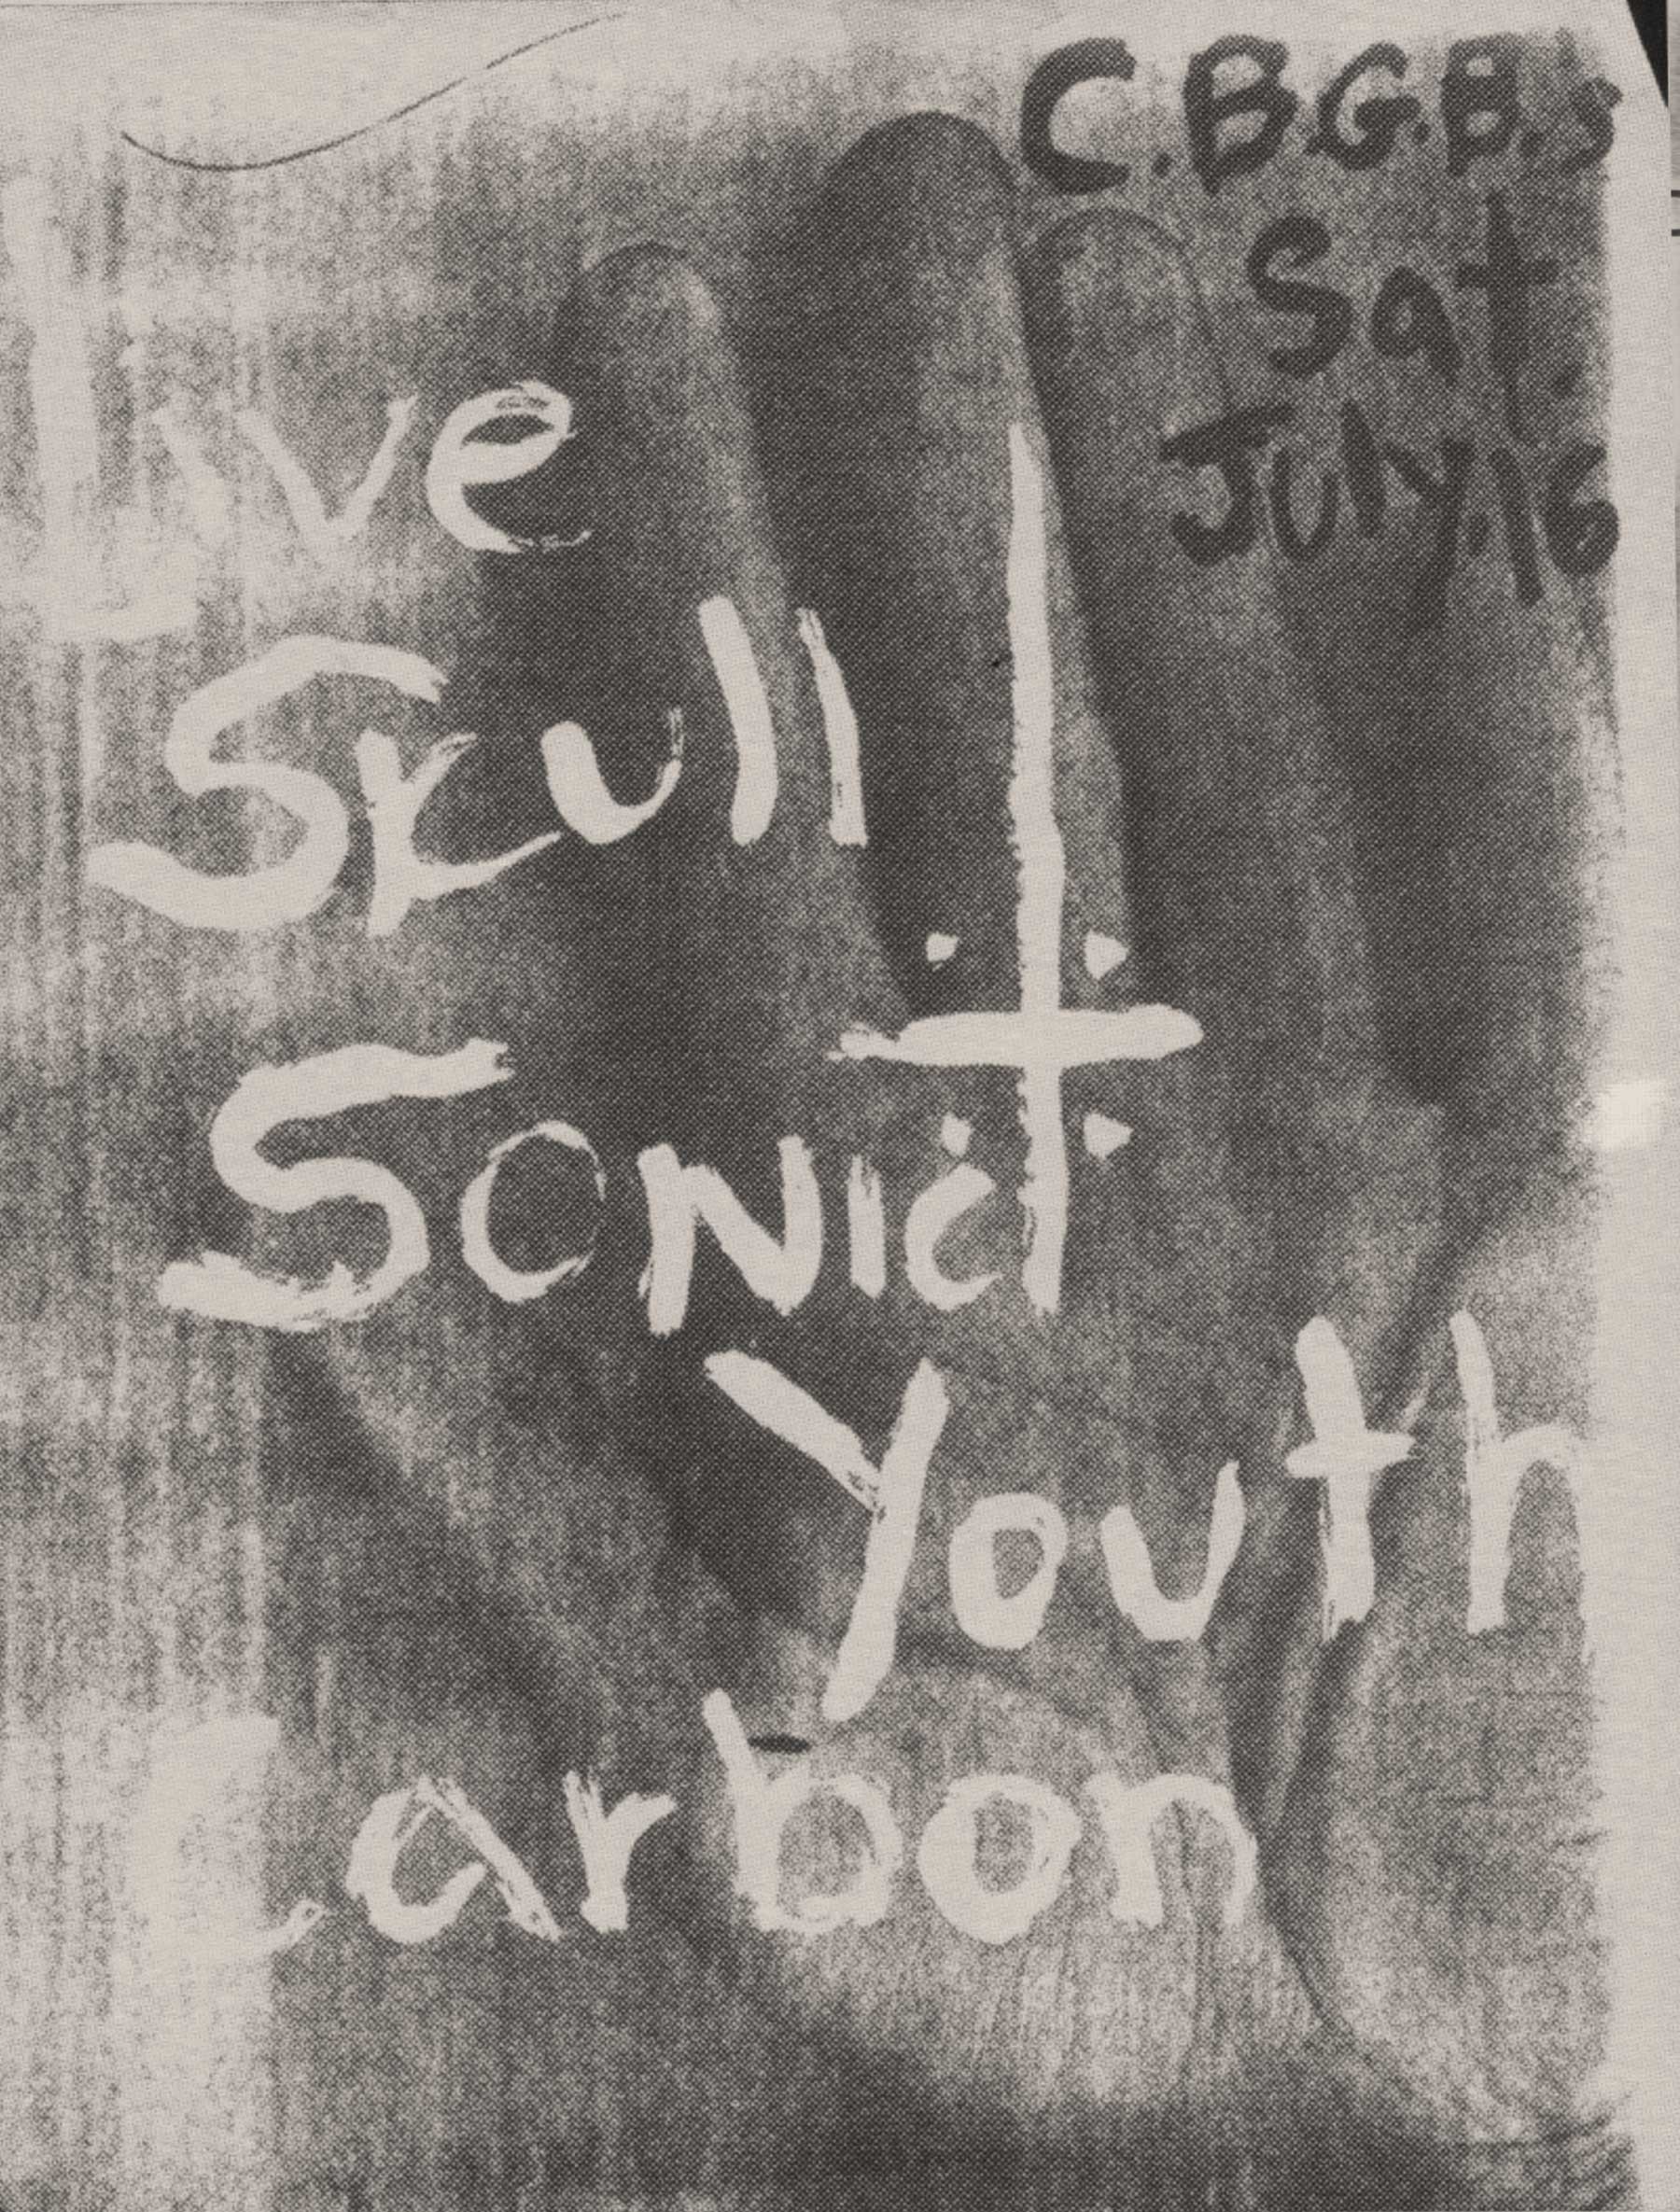 C.B.G.B.s
Sat.
July.16
Live
Skull
Sonic
Youth
Carbon